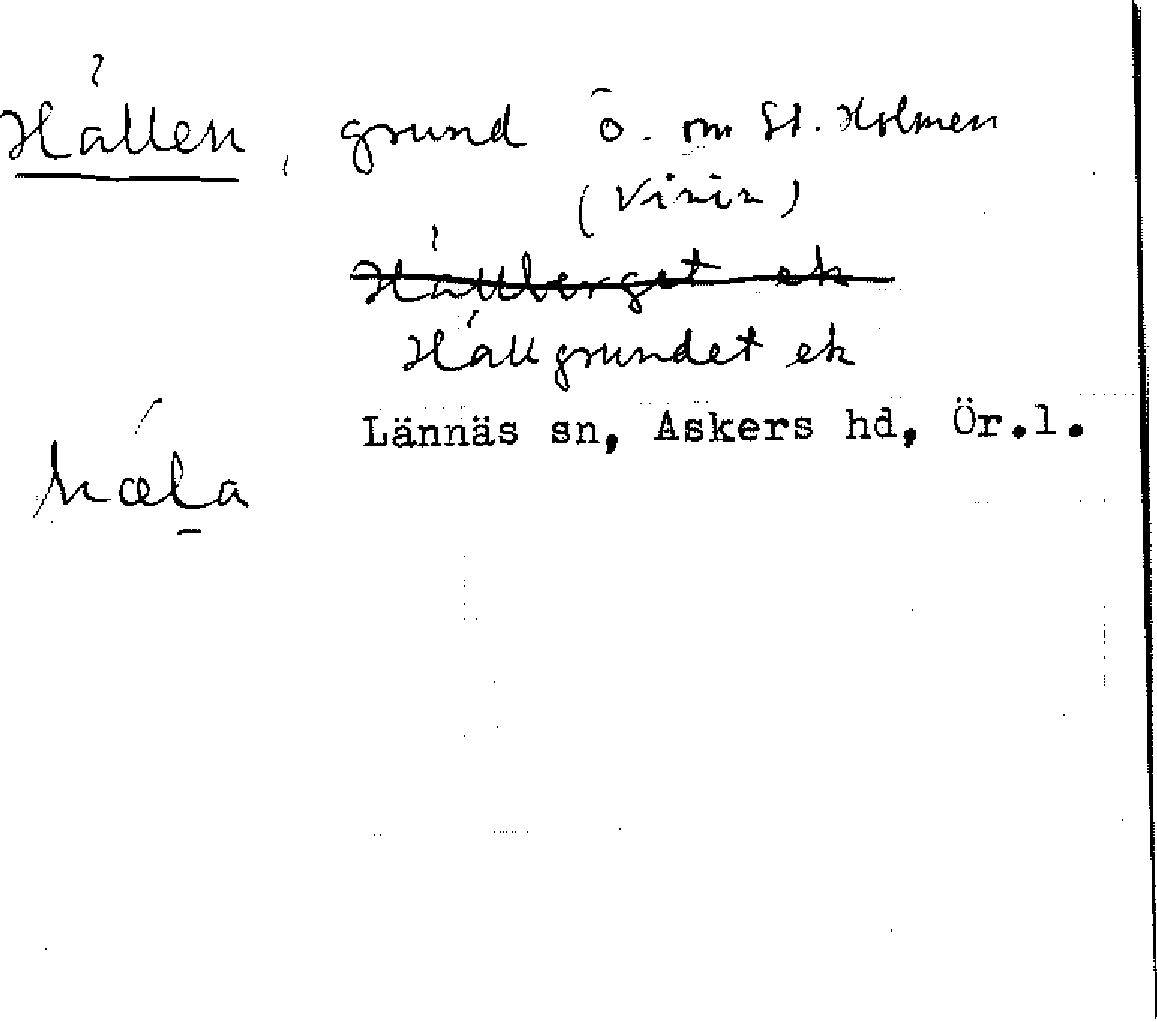 Hällen, grund ö. om St. Holmen
Hällberget ek
Hällgrundet ek
Lännäs sn, Askers hd, Ör.l.
hæla